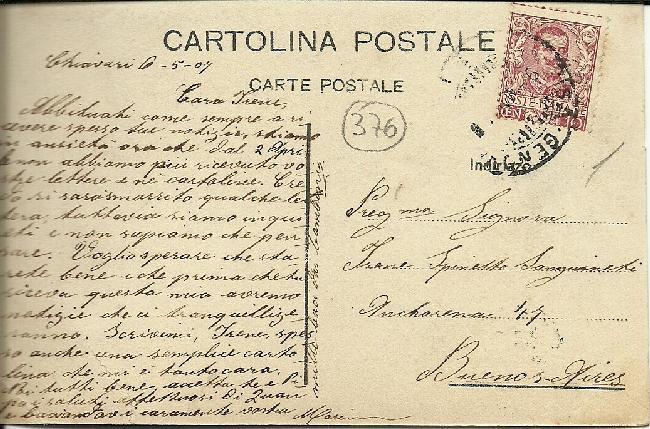 CARTOLINA POSTALE
CARTE POSTALE
Chiavari 6-5-07
Cara Irene,
Abbituati come sempre a ri
cevere spesso tue notizie, stiamo
in ansietà ora che dal 2 Apri
le non abbiamo più ricevuto vo
stre lettere e nè cartoline. Cre
do si sarà smarrita qualche let
tera, tuttavia siamo inqui
eti e non sappiamo che pen
sare. Voglio sperare che sta
rete bene e che prima che tu
riceva questa mia avremo
notizie che ci tranquillizze
ranno. Scrivimi, Irene, spe
so anche una semplice carto
lina che mi è tanto cara.
Noi tutti bene, accetta te e Pi
po i saluti affettuosi di
caramente vostra
Mari
376
POSTE
CEN
GEN
Indirizzo
Preg ma Signora
Irene Spinetto Sanguineti
Anchorena 47
Buenos-Aires